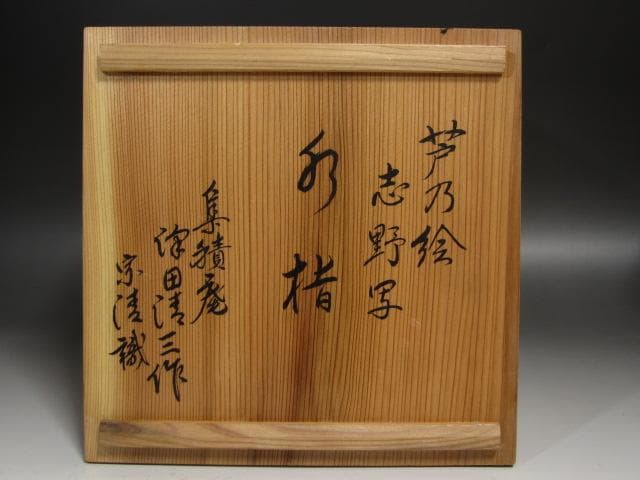 芦乃絵
志野写
水指
集積庵
津田清三作
宗清識